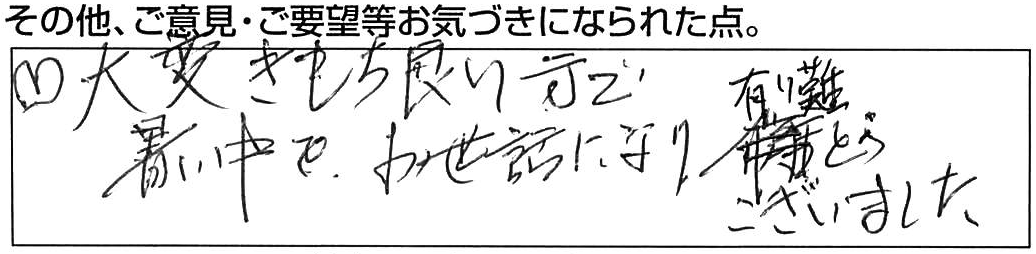 その他、ご意見・ご要望等お気づきになられた点。
① 大変きもち良い方で
暑い中で、お世話になり 有り難とう
ございました